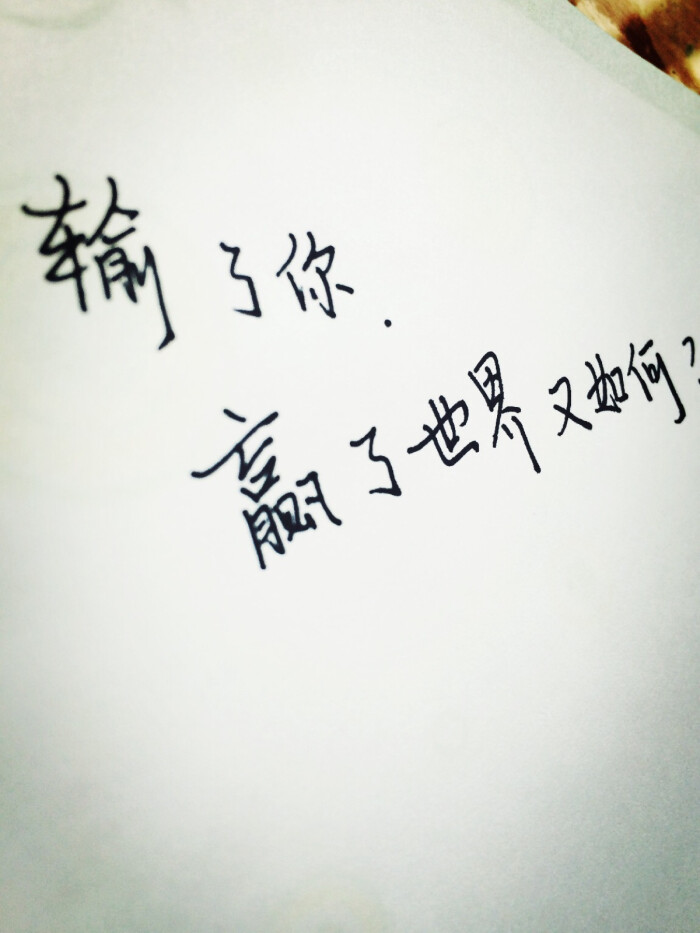 输了你.
赢了世界又如何?